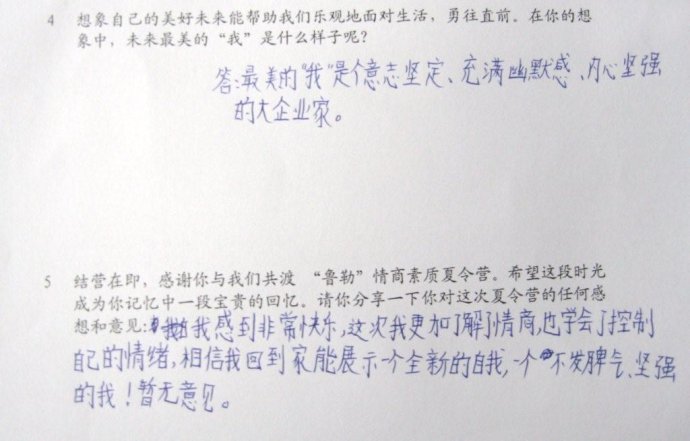 4 想象自己的美好未来能帮助我们乐观地面对生活，勇往直前。在你的想
象中，未来最美的“我”是什么样子呢？
答：最美的“我”是个意志坚定、充满幽默感、内心坚强
的大企业家。
5 结营在即，感谢你与我们共渡 “鲁勒”情商素质夏令营。希望这段时光
成为你记忆中一段宝贵的回忆。请你分享一下你对这次夏令营的任何感
想和意见：我感到非常快乐，这次我更加了解了情商，也学会了控制
自己的情绪，相信我回到家能展示一个全新的自我，一个不发脾气、坚强
的我！暂无意见。